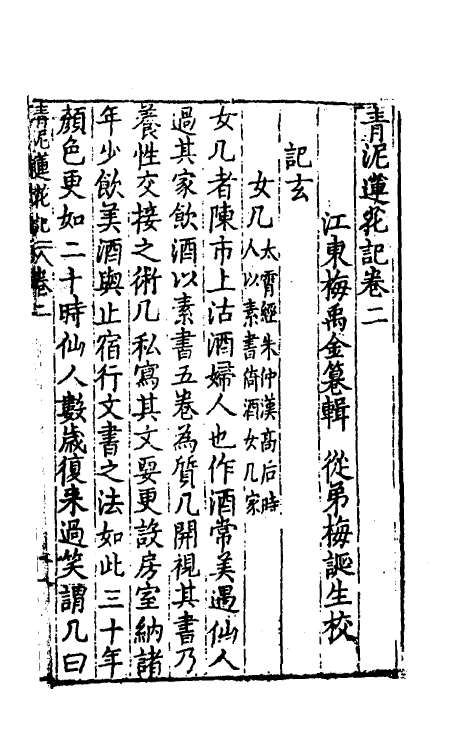 青泥蓮花記卷二
江東梅禹金纂輯　從弟梅誕生校
記玄
女几太霄經朱仲漢高后時
人以素書倚酒女几家
女几者陳市上沽酒婦人也作酒常美遇仙人
過其家飲酒以素書五卷為質几開視其書乃
養性交接之術几私寫其文要更設房室納諸
年少飲美酒與止宿行文書之法如此三十年
顏色更如二十時仙人數歲復来過笑謂几曰
青泥蓮花記　卷二